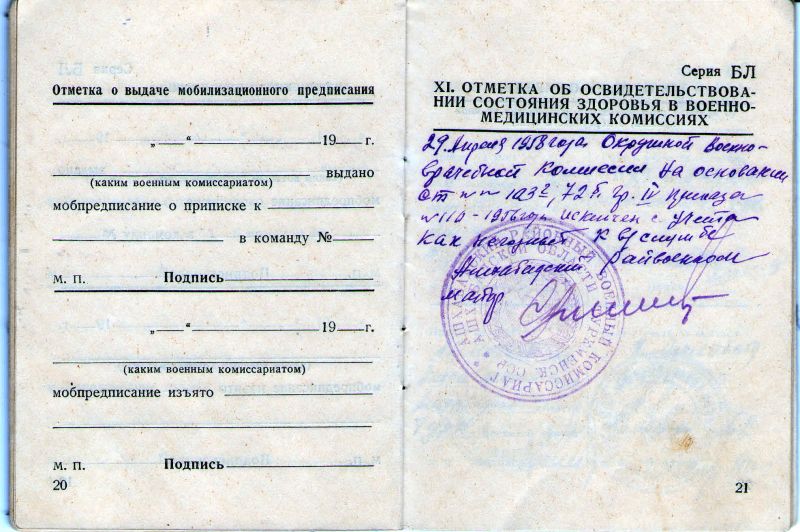 Отметка о выдаче мобилизационного предписания
„ “ 19 г.
выдано
(каким военным комиссариатом)
мобпредписание о приписке к
в команду №
М. П. Подпись
„ “ 19 г.
(каким военным комиссариатом)
мобпредписание изъято
М. П. Подпись
20
Серия БЛ
XI. ОТМЕТКА ОБ ОСВИДЕТЕЛЬСТВОВА-
НИИ СОСТОЯНИЯ ЗДОРОВЬЯ В ВОЕННО-
МЕДИЦИНСКИХ КОМИССИЯХ
29 Апреля 1958 года Окружной Военно-
врачебной Комиссией на основании
ст гр. IV приказа
№ 110-1956 года исключен с учета
как негодный к в/службе
Ашхабадский Райвоенком
майор
21